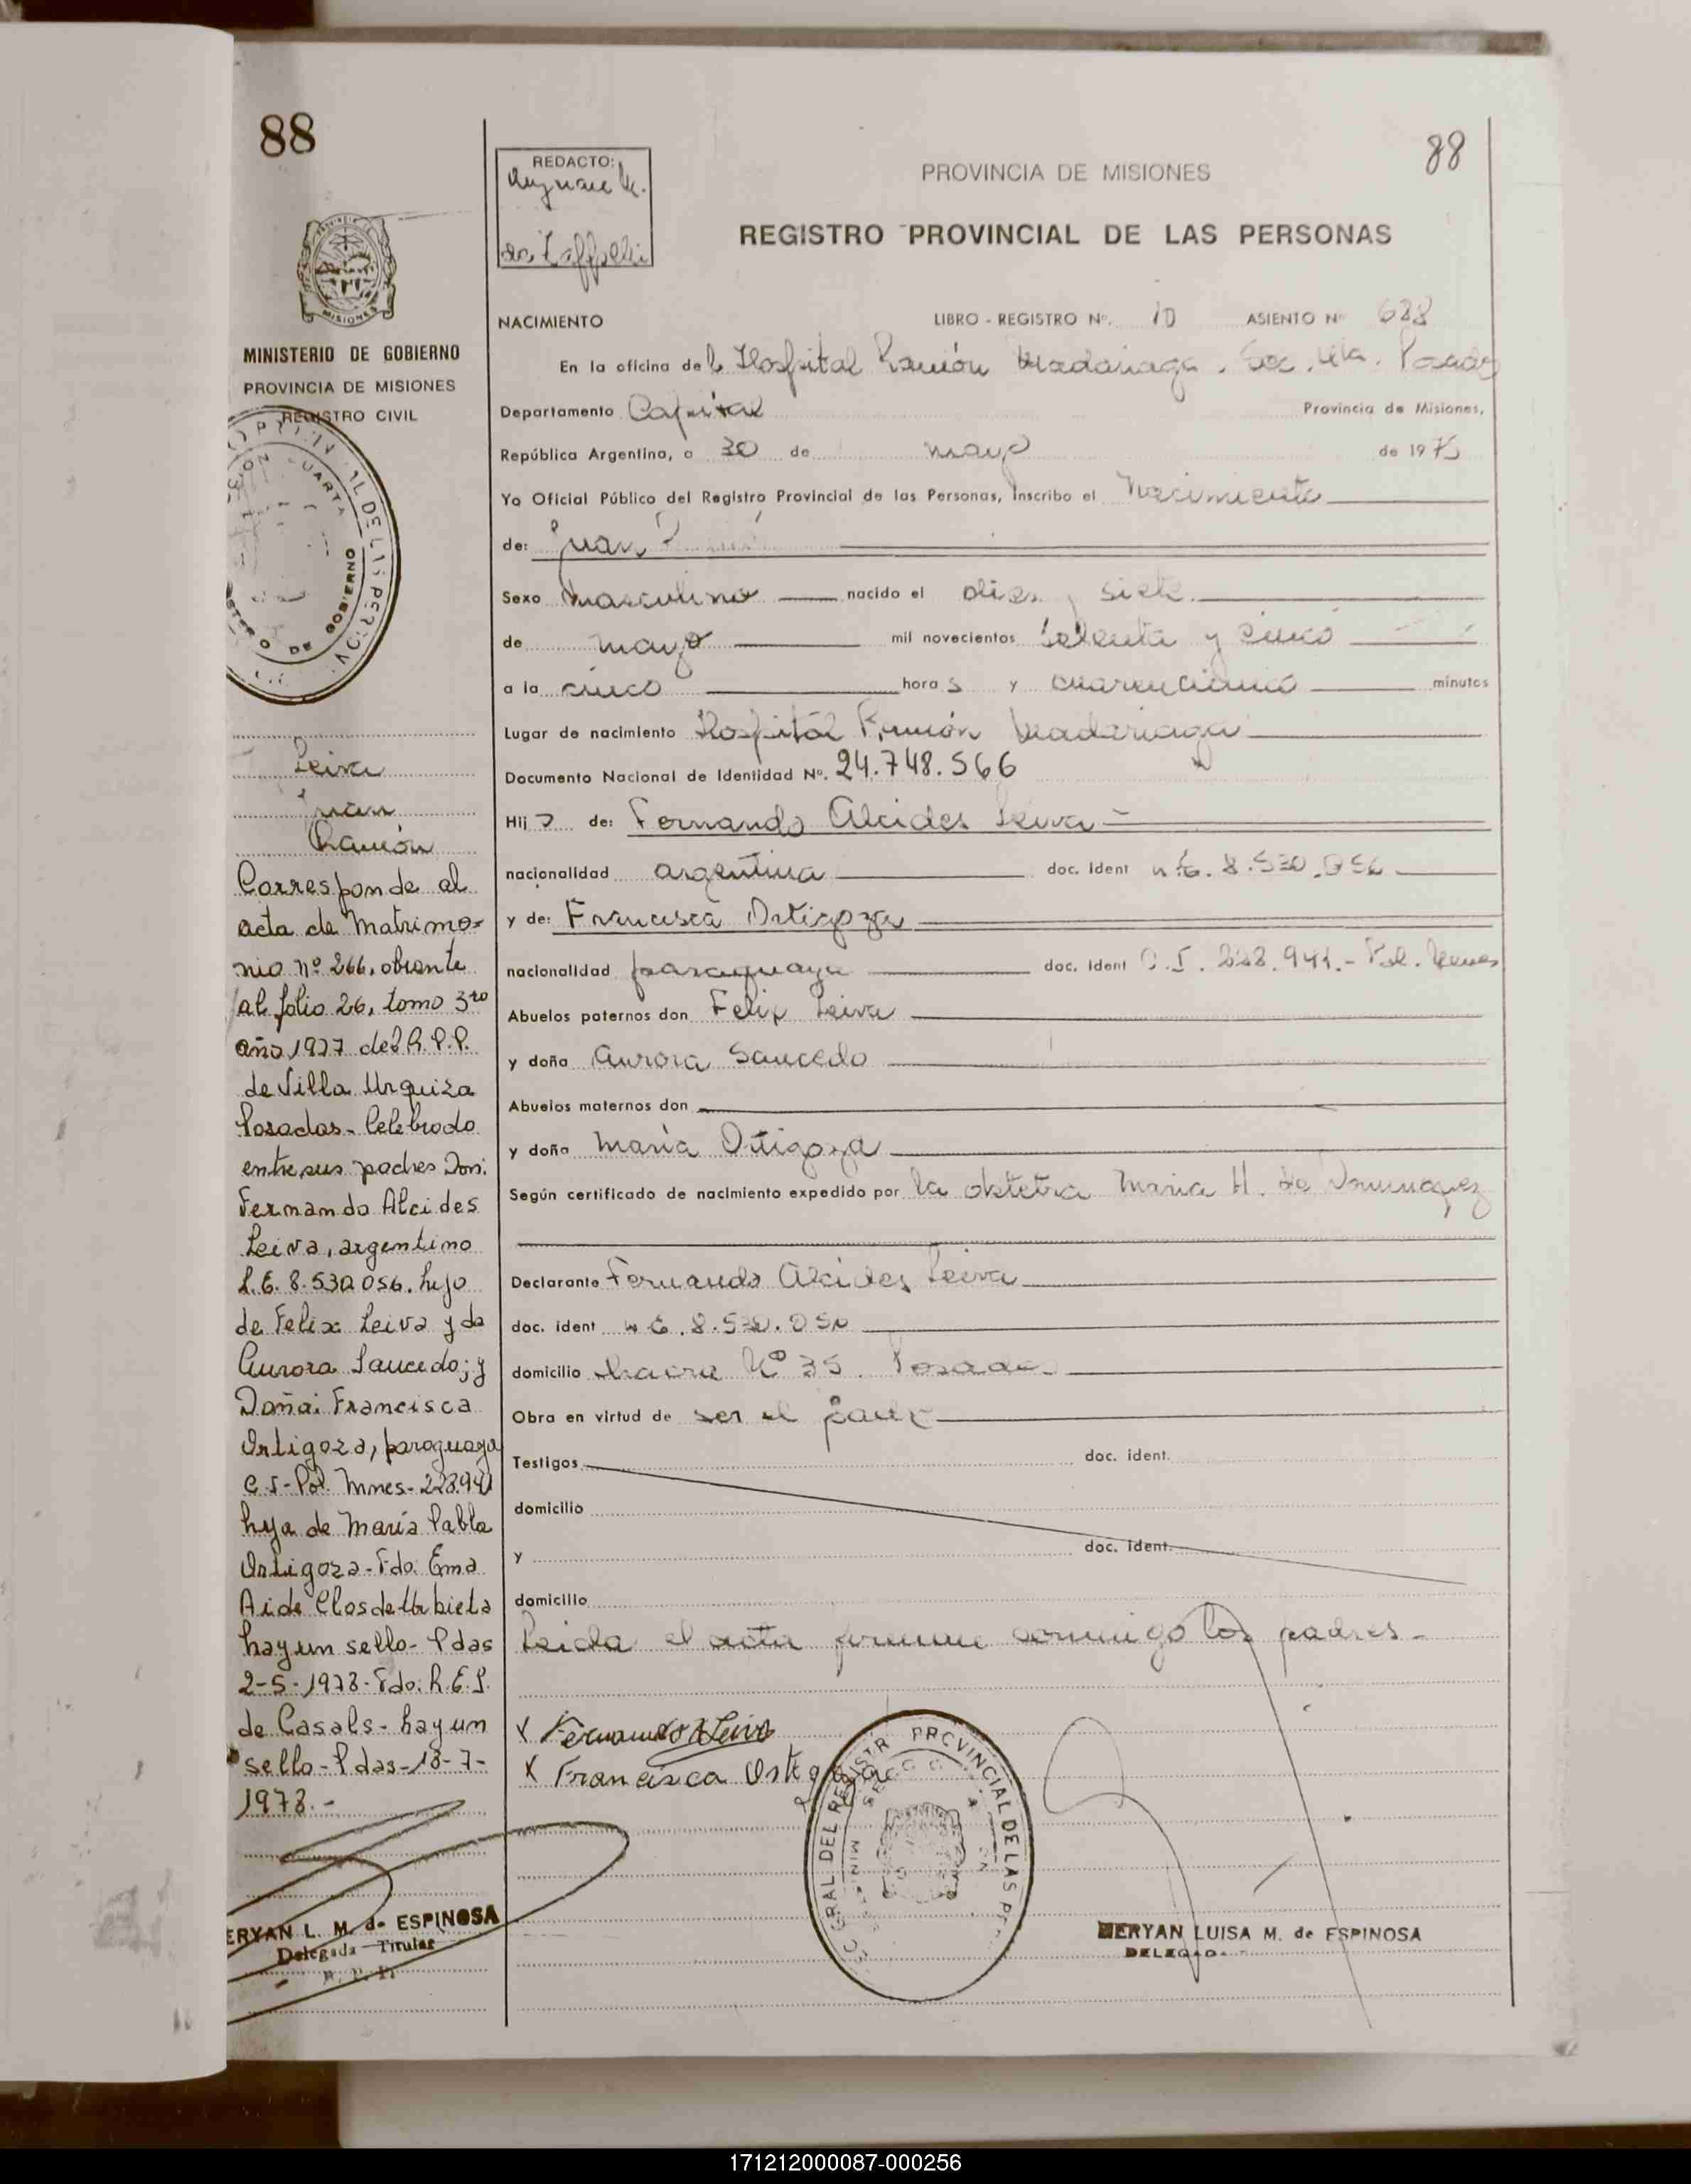 88
88
REDACTO:
PROVINCIA DE MISIONES
REGISTRO PROVINCIAL DE LAS PERSONAS
NACIMIENTO LIBRO - REGISTRO Nº. 10 ASIENTO Nº 688
En la oficina del Hospital Ramón Madariaga. Sec. 4ta. Posadas
Departamento Capital Provincia de Misiones,
República Argentina, a 30 de mayo de 1975
Yo Oficial Público del Registro Provincial de las Personas, Inscribo el Nacimiento
de: Juan
Sexo masculino nacido el diez y siete
de mayo mil novecientos setenta y cinco
a la cinco hora s y cuarenticinco minutos
Lugar de nacimiento Hospital Ramón Madariaga
Documento Nacional de Identidad Nº. 24.748.566
Hij o de: Fernando Alcides Leiva
nacionalidad argentina doc. Ident 8.530.056
y de: Francisca Ortigoza
nacionalidad paraguaya doc. Ident C.I. 228.941.- Pol. Mnes
Abuelos paternos don Felix Leiva
y doña Aurora Saucedo
Abuelos maternos don
y doña María Ortigoza
Según certificado de nacimiento expedido por la obstetra Maria H. de Dominguez
Declarante Fernando Alcides Leiva
doc. ident 8.530.056
domicilio chacra Nº 35. Posadas
Obra en virtud de ser el padre
Testigos doc. ident.
domicilio
y doc. ident.
domicilio
Leida el acta firman conmigo los padres-
X Fernando A Leiva
X Francisca Ortigoza
MERYAN LUISA M. de ESPINOSA
DELEGADA
MINISTERIO DE GOBIERNO
PROVINCIA DE MISIONES
REGISTRO CIVIL
Leiva
Juan
Ramón
Corresponde al
acta de Matrimo-
nio nº 266, obrante
al folio 26, tomo 3ro
año 1977 del R.P.P.
de Villa Urquiza
Posadas- Celebrado
entre sus padres Don:
Fernando Alcides
Leiva, argentino
L.E. 8.530.056. hijo
de Felix Leiva y de
Aurora Saucedo; y
Doña: Francisca
Ortigoza, paraguaya
C.I- Pol. Mnes- 228.941
hija de María Pabla
Ortigoza- Fdo: Ema
Aide Clos de Urbieta
hay un sello- Pdas
2-5-1978- Fdo: R.E.S.
de Casals- hay un
sello- Pdas-18-7-
1978.-
ERYAN L. M. de ESPINOSA
Delegada Titular
171212000087-000256